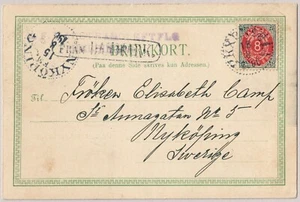 BREVKORT.
(Paa denne Side skrives kun Adressen.)
NYKÖPING
8
Til
Fröken Elisabeth Camp
St Annagatan No 5
Nyköping
Sverige